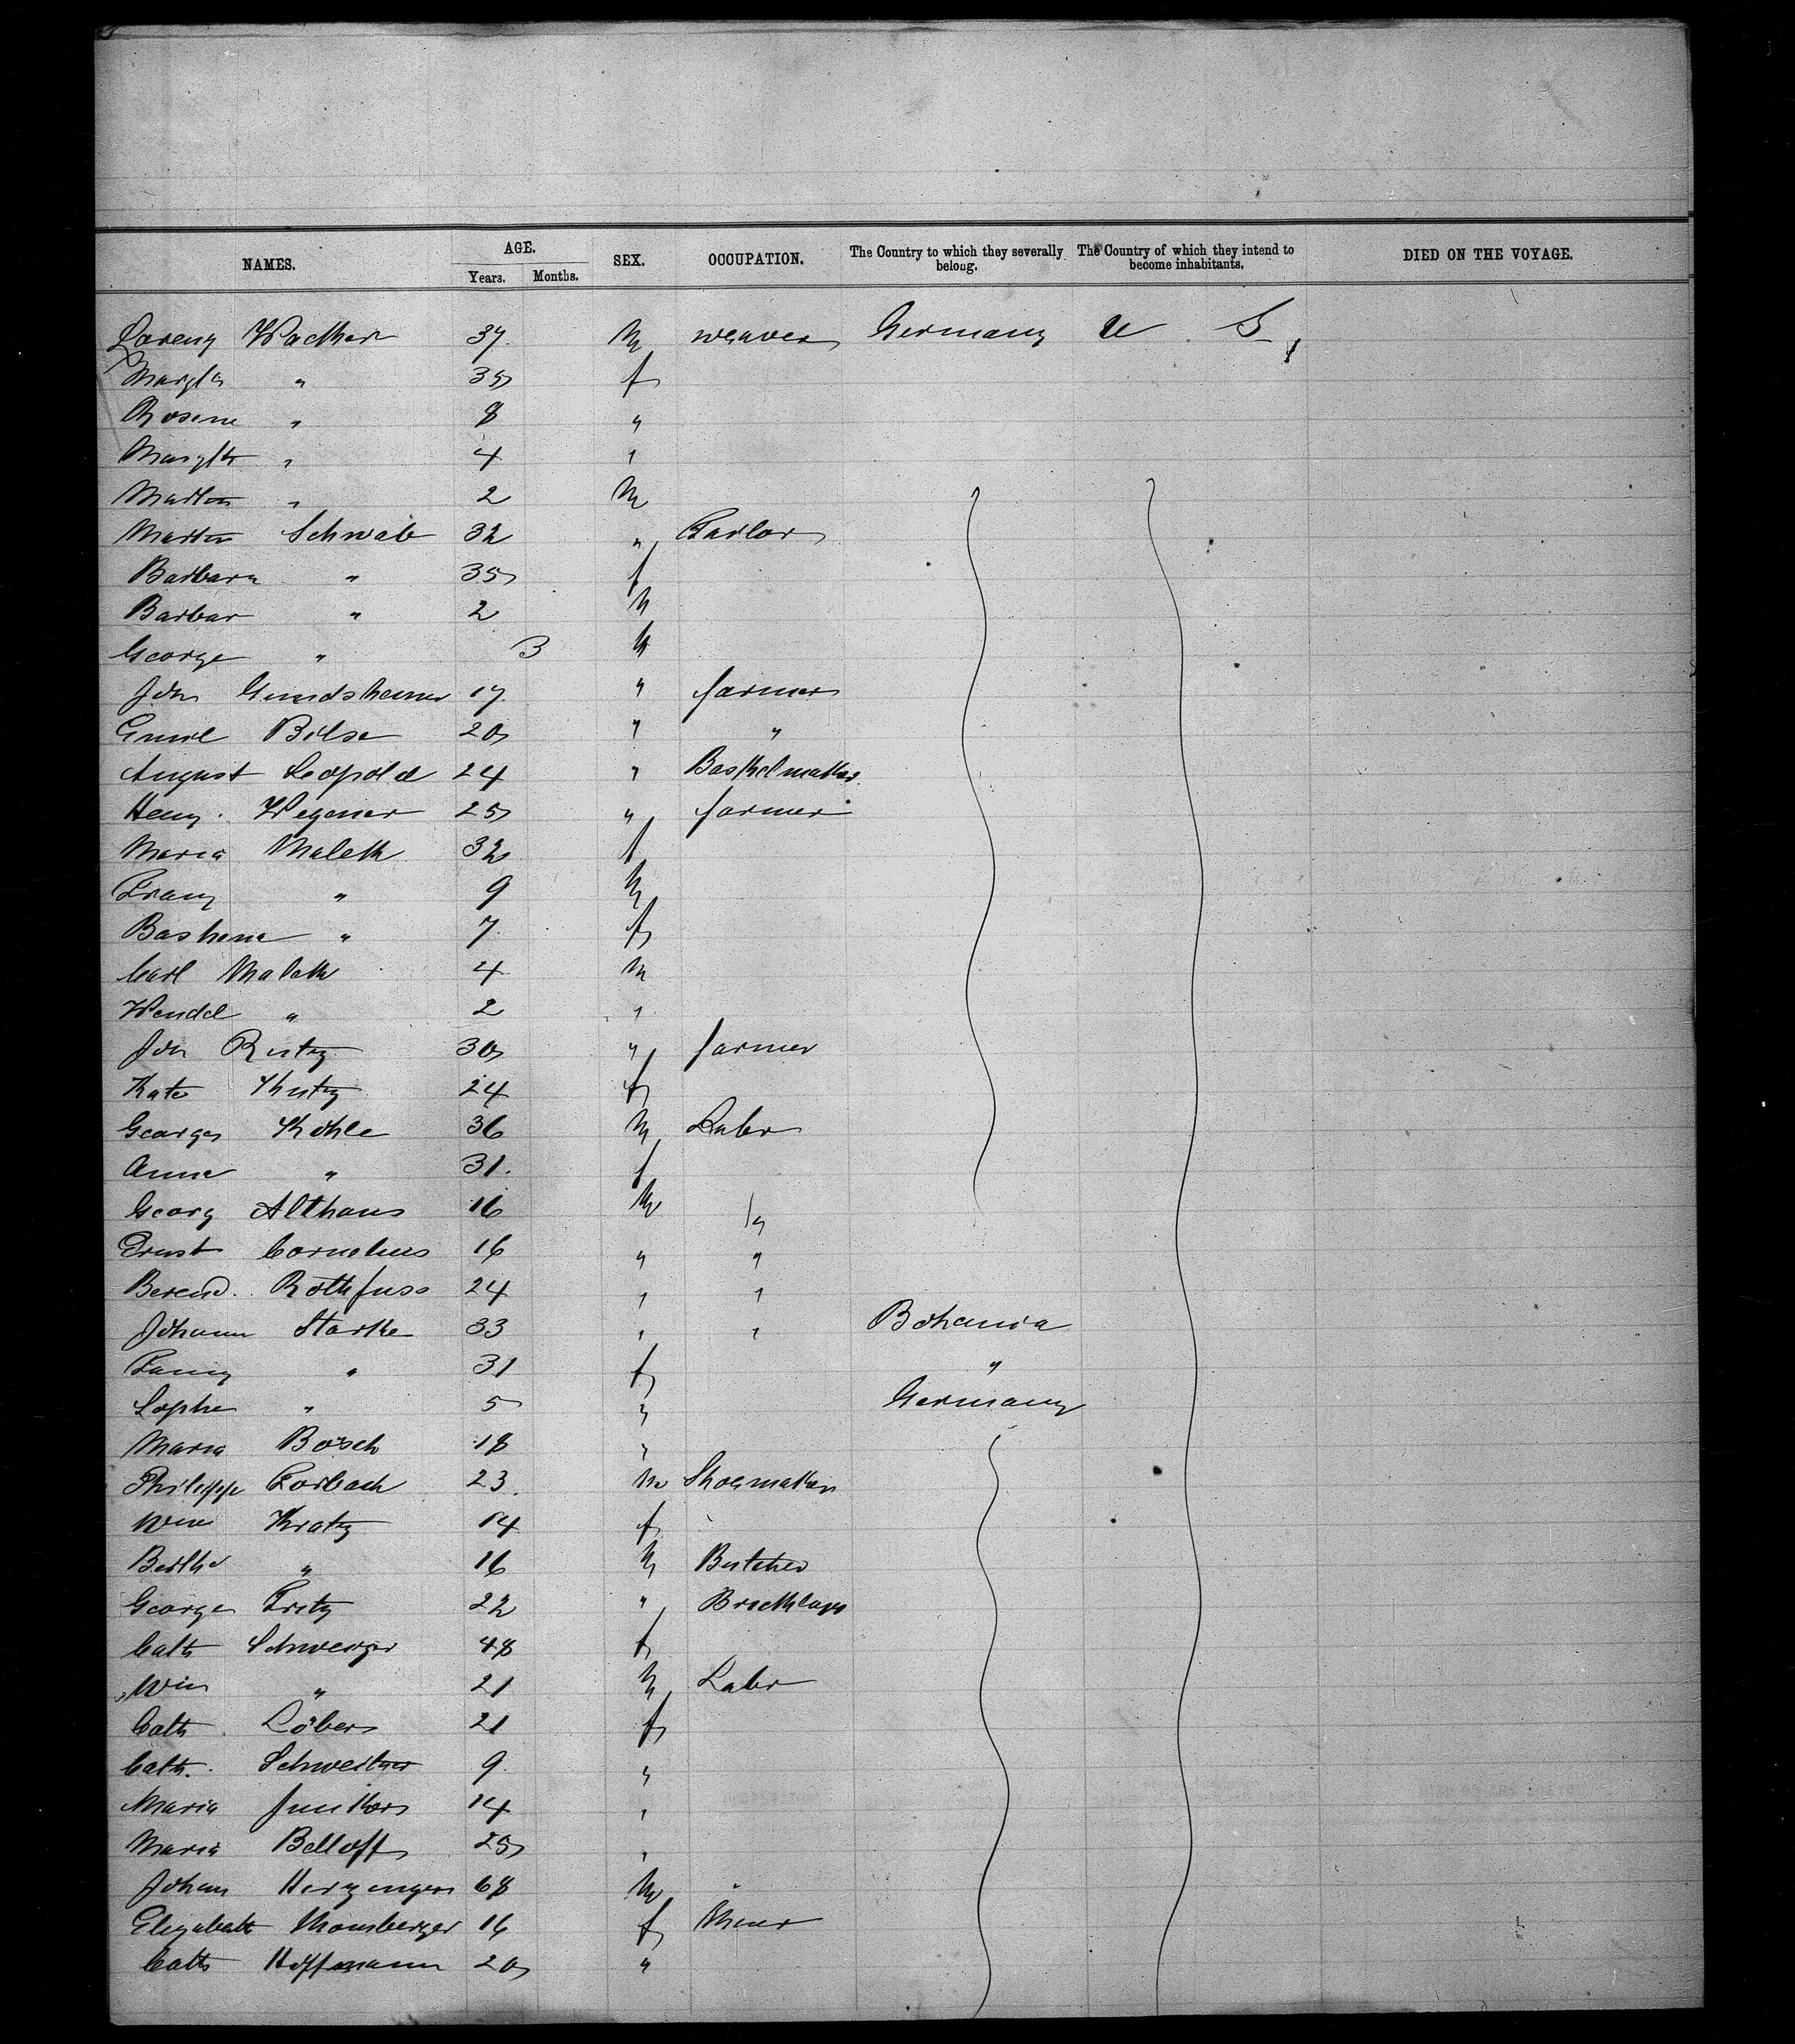 NAMES. AGE. Years. Months. SEX. OCCUPATION. The Country to which they severally belong. The Country of which they intend to become inhabitants. DIED ON THE VOYAGE.
Lorenz Wacker 37 M weaver Germany U S
Margth " 35 f
Rosine " 8 "
Margth " 4 "
Martin " 2 M
Martin Schwab 32 " Tailor
Barbara " 35 f
Barbar " 2 M
George " 3 M
John Gundsheimer 17 " farmer
Emil Bilse 20 " "
August Leopold 24 " Basketmaker
Heny. Wegener 25 " farmer
Maria Malek 32 f
Franz " 9 M
" 7 f
Carl Malek 4 M
Wendel " 2 "
John 30 " farmer
Kate 24 f
George Kohle 36 M Labr
Anna " 31. f
Georg Althaus 16 M "
Ernst Cornelius 16 " "
Berend. Rothfuss 24 " "
Johann Starke 33 " " Bohemia
Fanny " 31 f "
Sophie " 5 " Germany
Maria Bosch 18 "
Philipp Forbach 23 M Shoemaker
Wm Kratz 14 f
Bertha " 16 M Butcher
George Fritz 22 " Bricklayer
Cath 48 f
Wm " 21 M Labr
Cath Löber 21 f
Cath. 9 "
Maria Junker 14 "
Maria Belloff 25 "
Johan 68 M "
Elizabeth 16 f
Cath Hoffmann 20 "